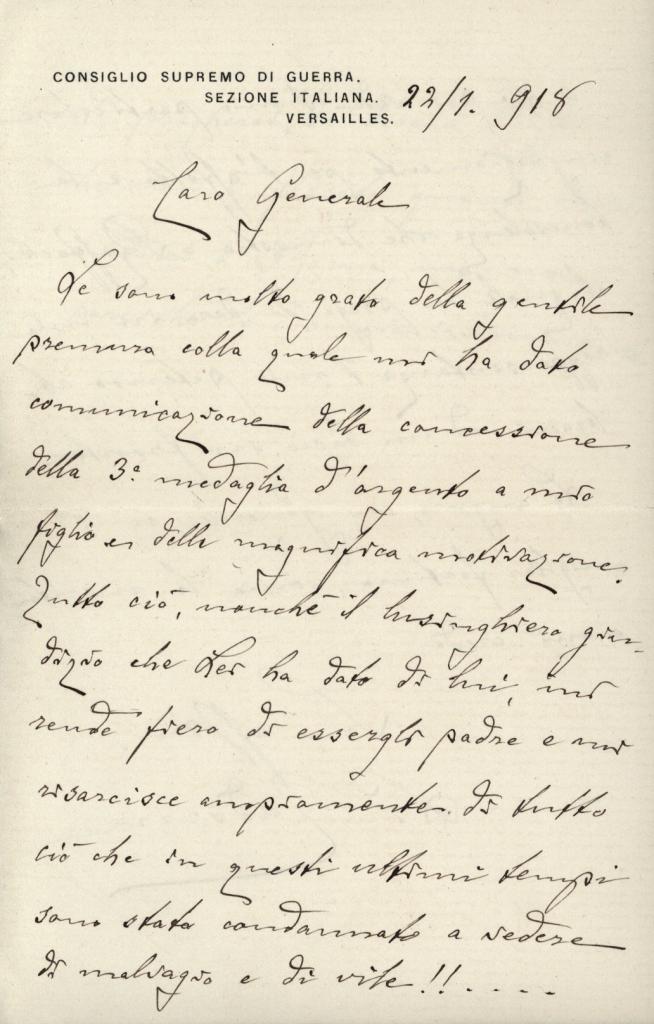 CONSIGLIO SUPREMO DI GUERRA.
SEZIONE ITALIANA.
VERSAILLES.
22/1. 918
Caro Generale
Le sono molto grato della gentile
premura colla quale mi ha dato
comunicazione della concessione
della 3ª medaglia d'argento a mio
figlio e della magnifica motivazione.
Tutto ciò, nonchè il lusinghiero giu-
dizio che Lei ha dato di lui, mi
rende fiero di essergli padre e mi
risarcisce ampiamente di tutto
ciò che in questi ultimi tempi
sono stato condannato a vedere
di malvagio e di vile!! . . . .